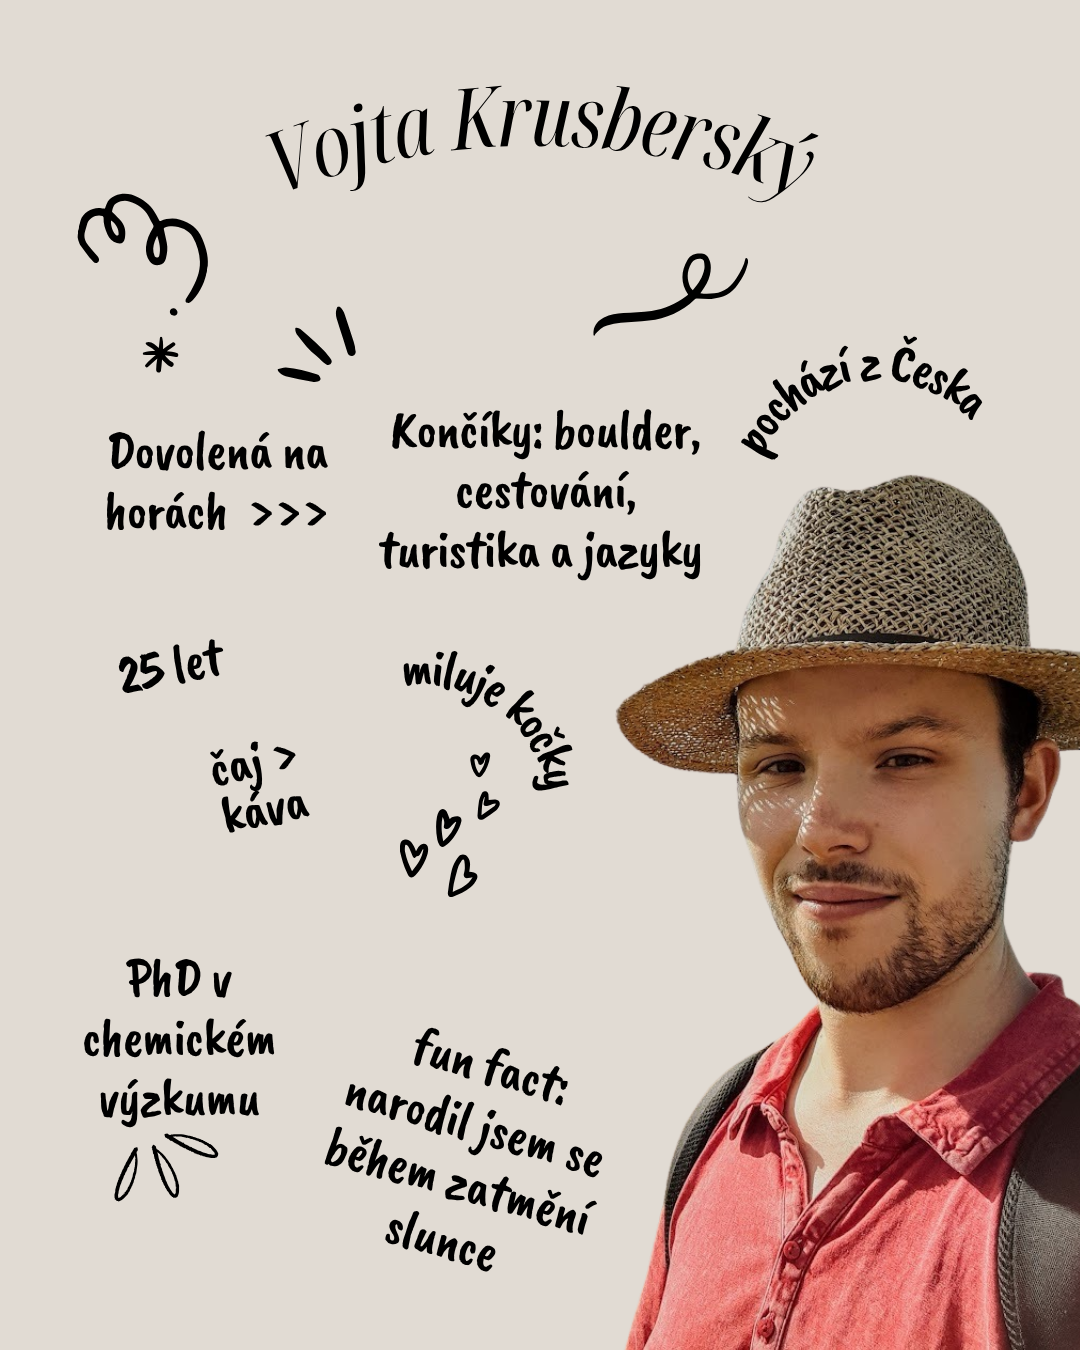 Vojta Krusberský
pochází z Česka
Dovolená na
horách >>>
Končíky: boulder,
cestování,
turistika a jazyky
25 let
miluje kočky
čaj >
káva
PhD v
chemickém
výzkumu
fun fact:
narodil jsem se
během zatmění
slunce